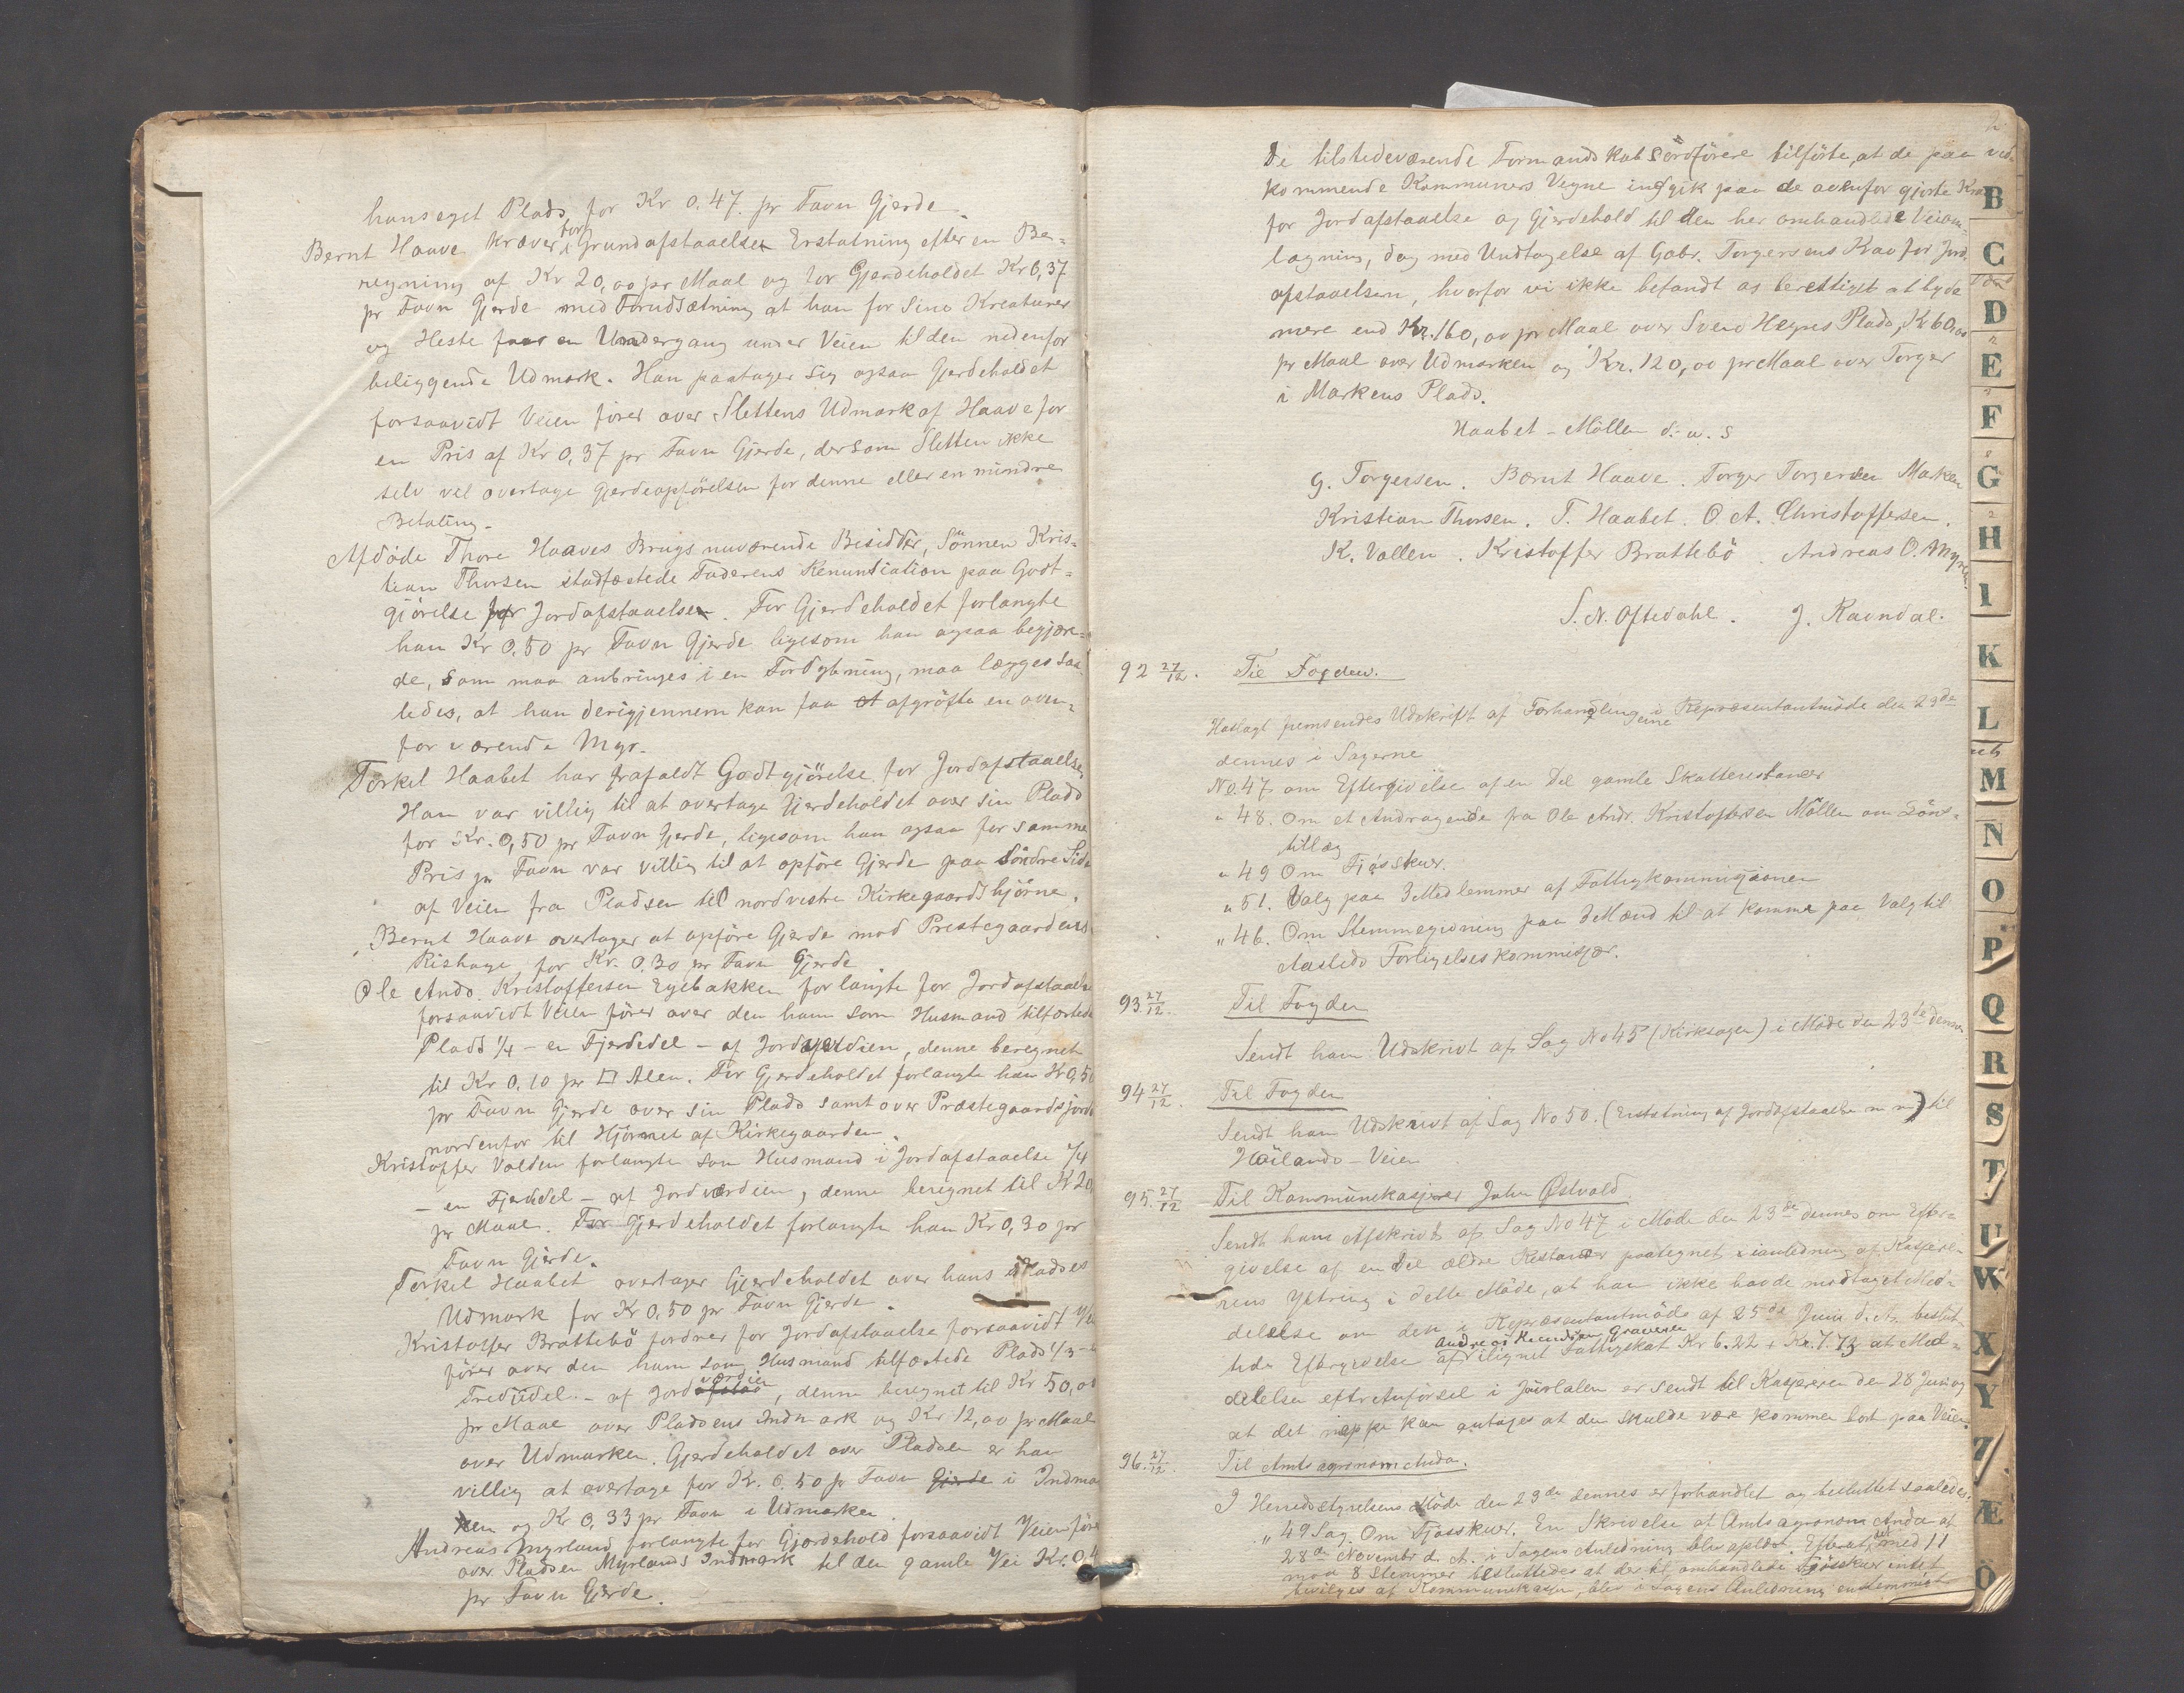 hans eget Plads, for Kr 0.47. pr Favn Gjerde.
Bernt Haave kræver for Grundafstaaelsen Erstatning efter en Be-
regning af Kr 20,00 pr Maal og for Gjerdeholdet Kr 0,37
pr Favn Gjerde med Forudsætning at han for sine Kreaturer
og Heste faar en Undergang under Veien til den nedenfor
beliggende Udmark. Han paatager sig ogsaa Gjerdeholdet
forsaavidt Veien fører over Slettens Udmark af Haave for
en Pris af Kr 0,37 pr Favn Gjerde, dersom Sletten ikke
selv vil overtage Gjerdeopførelsen for denne eller en mindre
Betaling.
Afdøde Thore Haaves Brugs nuværende Besidder, Sønnen Kris-
tian Thorsen stadfæstede Faderens Renuntiation paa Godt-
gjörelse for Jordafstaaelsen. For Gjerdeholdet forlangte
han Kr 0,50 pr Favn Gjerde ligesom han ogsaa begjære-
de, som maa anbringes i en Fordybning, maa lægges saa-
ledes, at han derigjennem kan faa at afgröfte en oven-
for værende Myr.
Torkel Haabet har frafaldt Godtgjörelse for Jordafstaaelsen
Han var villig til at overtage Gjerdeholdet over sin Plads
for Kr. 0,50 pr Favn Gjerde, ligesom han ogsaa for samme
Pris pr Favn var villig til at opföre Gjerde paa Söndre Side
af Veien fra Pladsen til nordvestre Kirkegaardshjörne.
Bernt Haave overtager at opföre Gjerde mod Prestegaardens
Rishage for Kr. 0.30 pr Favn Gjerde
Ole Andr. Kristoffersen Eyebakken forlangte for Jordafstaaelse
forsaavidt Veien förer over den ham som Husmand tilfæstede
Plads 1/4 - en Fjerdedel - af Jordværdien, denne beregnet
til Kr 0,10 pr □ Alen. For Gjerdeholdet forlangte han Kr 0,50
pr Favn Gjerde over sin Plads samt over Præstegaardsjord
nordenfor til Hjörnet af Kirkegaarden.
Kristoffer Valden forlangte som Husmand i Jordafstaaelse 1/4
- en Fjerdedel - af Jordværdien, denne beregnet til Kr 20,
pr Maal. For Gjerdeholdet forlangte han Kr 0,30 pr
Favn Gjerde.
Torkel Haabet overtager Gjerdeholdet over hans Pladses
Udmark for Kr 0,50 pr Favn Gjerde.
Kristoffer Brattebö fordrer for Jordafstaaelse forsaavidt Vei
förer over den ham som Husmand tilfæstede Plads 1/3 - en
Trediedel - af Jordværdien, denne beregnet til Kr 50,00
pr Maal over Pladsens Indmark og Kr 12,00 pr Maal
over Udmarken. Gjerdeholdet over Pladsen er han
villig at overtage for Kr. 0.50 pr Favn Gjerde i Indmar
ken og Kr 0,33 pr Favn i Udmarken.
Andreas Myrland forlangte for Gjerdehold forsaavidt Veien före
over Pladsen Myrlands Indmark til den gamle Vei Kr. 0,4
pr Favn Gjerde.
De tilstedeværende Formandskabsordförere tilförte, at de paa ved-
kommende Kommuners Vegne indgik paa de ovenfor gjorte Krav
for Jordafstaaelse og Gjerdehold til den her omhandlede Veian-
lægning, dog med Undtagelse af Gabr. Torgersens Krav for Jord-
afstaaelsen, hvorfor vi ikke befandt os berettiget at byde
mere end Kr. 160,00 pr Maal over Svend Hegres Plads, Kr 60,00
pr Maal over Udmarken og Kr. 120,00 pr Maal over Torger
i Markens Plads.
Haabet - Möllen d. u. s
G. Torgersen. Bernt Haave. Torger Torgersen Marken
Kristian Thorsen. T. Haabet. O. A. Christoffersen.
K. Vallen. Kristoffer Brattebö Andreas O. Myrland
S. N. Oftedahl. J. Ravndal.
92 27/12. Til Fogden.
Hoslagt fremsendes Udskrift af Forhandlingerne i Repræsentantmöde den 23de
dennes i Sagerne
No. 47 om Eftergivelse af en Del gamle Skatterestancer
" 48. Om et Andragende fra Ole Andr. Kristoffersen Möllen om Löns-
tillæg
" 49 Om Fjøsskuer.
" 51. Valg paa 3 Medlemmer af Fattigkommissionen
" 46. Om Stemmegivning paa 3 Mænd til at komme paa Valg til
Aasteds Forligelseskommissær.
93 27/12. Til Fogden
Sendt ham Udskrivt af Sag No 45 (Kirkesagen) i Möde den 23de dennes
94 27/12. Til Fogden
Sendt ham Udskrivt af Sag No 50. (Erstatning af Jordafstaaelse m m) til
Höilands-Veien
95. 27/12 Til Kommunekasserer John Østvold.
Sendt ham Afskrivt af Sag No 47 i Möde den 23de dennes om Efter-
givelse af en Del ældre Restancer paategnet i anledning af Kassere-
rens Yttring i dette Möde, at han ikke havde modtaget Med-
delelse om den i Repræsentantmöde af 25de Juni d. A. beslut-
tede Eftergivelse af Andreas Knudsen Graveren ilignet Fattigskat Kr 6.22 + Kr. 7.73 at Med-
delelse efter Anförsel i Journalen er sendt til Kassereren den 28 Juni og
at det neppe kan antages at den skulde være kommen bort paa Veien.
96. 27/12. Til Amtsagronom Anda.
I Herredsstyrelsens Möde den 23de dennes er forhandlet og besluttet saaledes:
" 49 Sag. Om Fjösskuer. En Skrivelse af Amtsagronom Anda af
28de Novembr d. A. i Sagens Anledning blev oplæst. Efterat det med 11
mod 8 Stemmer besluttedes at der til omhandlede Fjösskuer intet
bevilges af Kommunekassen, blev i Sagens Anledning enstemmigt
B
C
D
E
F
G
H
I
K
L
M
N
O
P
Q
R
S
T
U
W
X
Y
Z
Æ
Ö